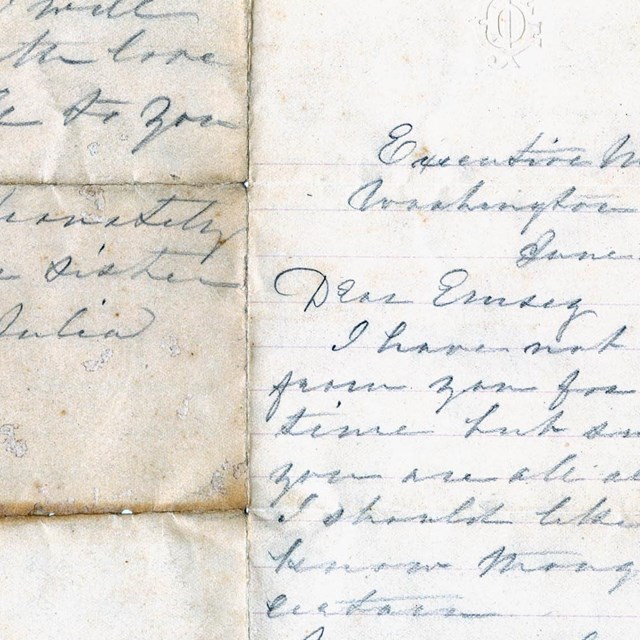 will
love
to you
sister
Julia
Executive M
Washington
June
Dear Emsey
I have not
from you for
time but su
you are all a
I should like
know
certain